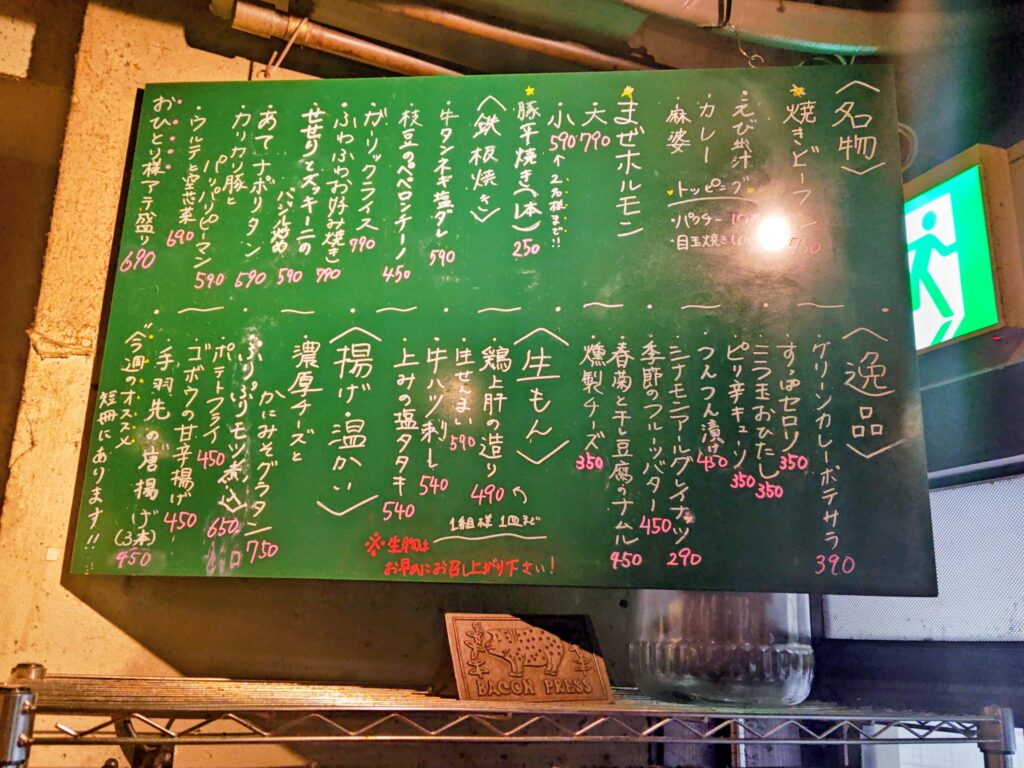 〈名物〉
焼きビーフン 750
・えび出汁
・カレー
・麻婆
トッピング
・パクチー 100
・目玉焼き
まぜホルモン
大 790
小 590 ↑2名様まで!!
豚平焼き(1本) 250
〈鉄板焼き〉
・牛タンネギ塩ダレ 590
・枝豆のペペロンチーノ 450
・ガーリックライス 790
・ふわふわお好み焼き 790
・せせりとズッキーニの
バジル炒め 590
・あてナポリタン 590
・カリカリ豚と
パリパリピーマン 590
・ウルテと空芯菜 690
おひとり様アテ盛り 690
〈逸品〉
・グリーンカレーポテサラ 390
・すっぱセロリ 350
・ニラ玉おひたし 350
・ピリ辛キューリ 350
・つんつん漬け 450
・シナモンアールグレイナッツ 290
・季節のフルーツバター 450
・春菊と干し豆腐のナムル 450
・燻製チーズ 350
〈生もん〉
・鶏上肝の造り 490
1組様 1皿まで
・生せんまい 590
・牛ハツ刺し 540
・上みの塩タタキ 540
※生物は
お早めにお召し上がり下さい!
〈揚げ・温かい〉
・濃厚チーズと
かにみそグラタン 750
・ぷりぷりモツ煮込 650
・ポテトフライ 450
・ゴボウの甘辛揚げ 450
・手羽先の唐揚げ(3本) 450
〈今週のオススメ
短冊にあります!!
BACON PRESS